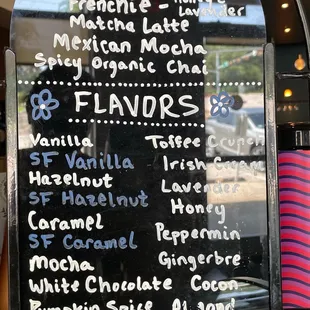 Frenchie - Lavender
Matcha Latte
Mexican Mocha
Spicy Organic Chai
FLAVORS
Vanilla
SF Vanilla
Hazelnut
SF Hazelnut
Caramel
SF Caramel
Mocha
White Chocolate
Pumpkin Spice
Toffee Crunch
Irish Cream
Lavender
Honey
Peppermin
Gingerbre
Cocon